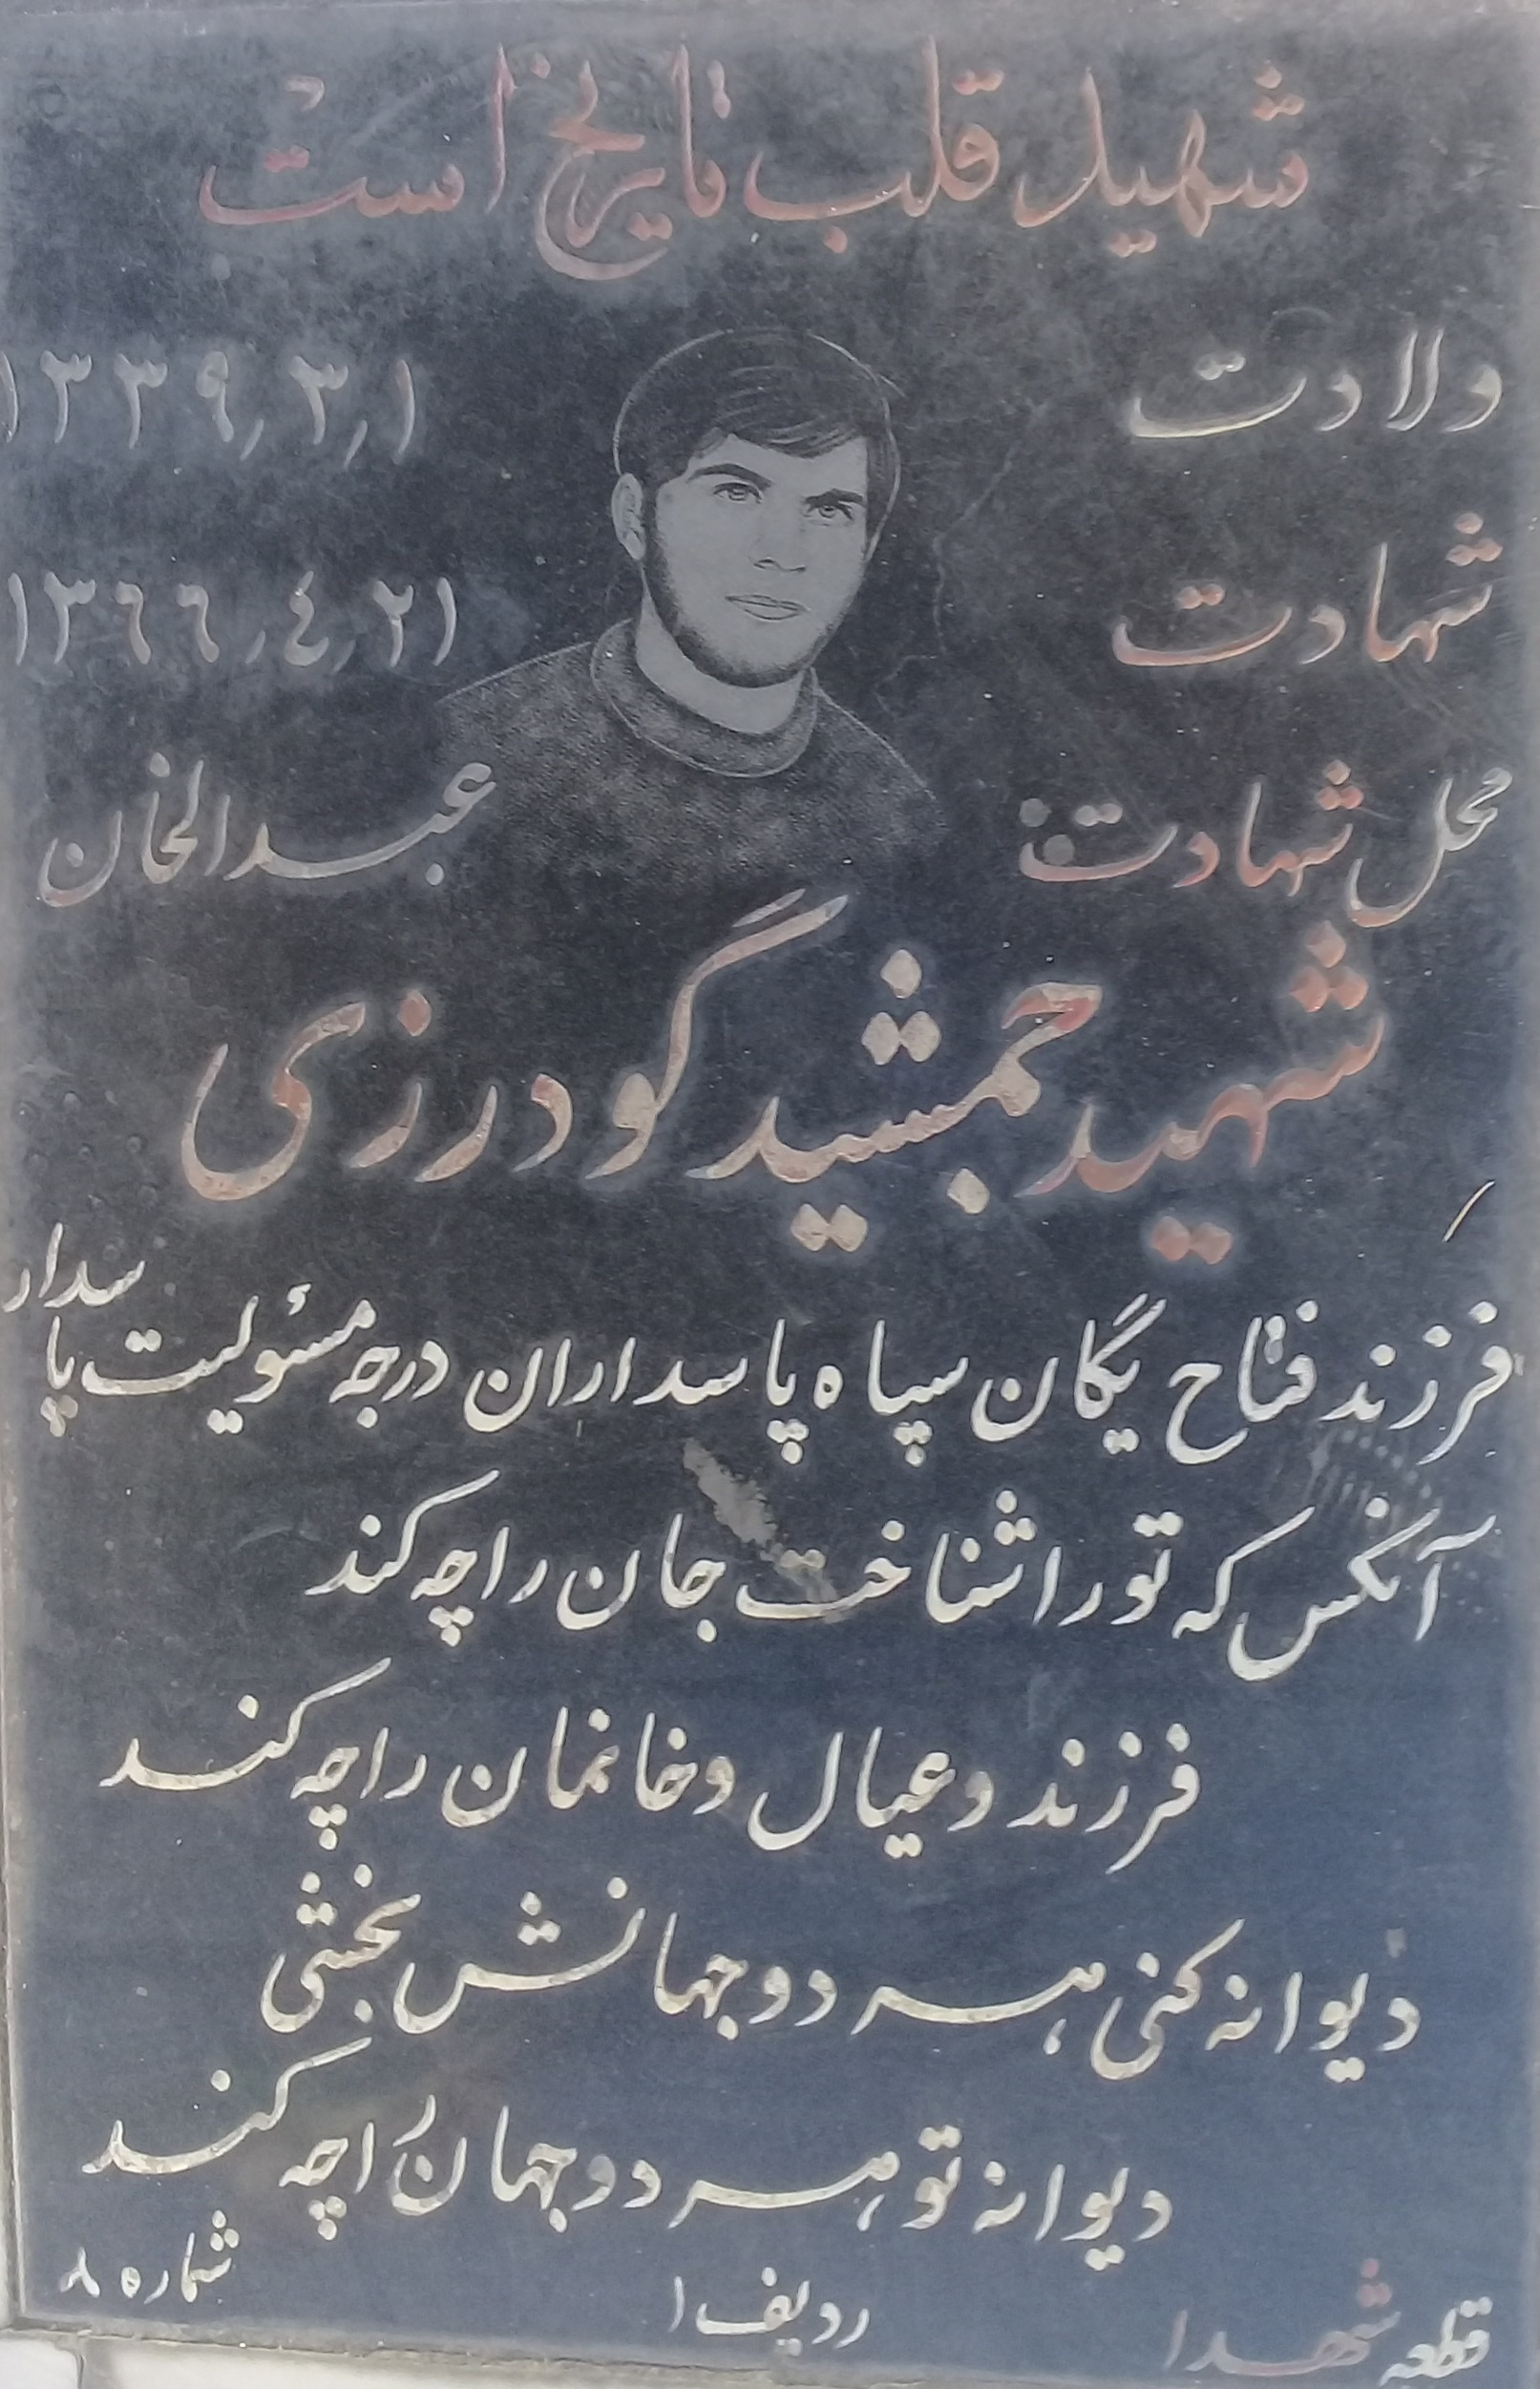 شهید قلب تاریخ است
ولادت ۱۳۳۹٫۳٫۱
شهادت ۱۳٦٦٫٤٫۲۱
محل شهادت: عبدالخان
شهید جمشید گودرزی
فرزند فتاح یگان سپاه پاسداران درجه مسئولیت پاسدار
آنکس که تو را شناخت جان را چه کند
فرزند و عیال و خانمان را چه کند
دیوانه کنی هر دو جهانش بخشی
دیوانه تو هر دو جهان را چه کند
قطعه شهدا ردیف ۱ شماره ۸